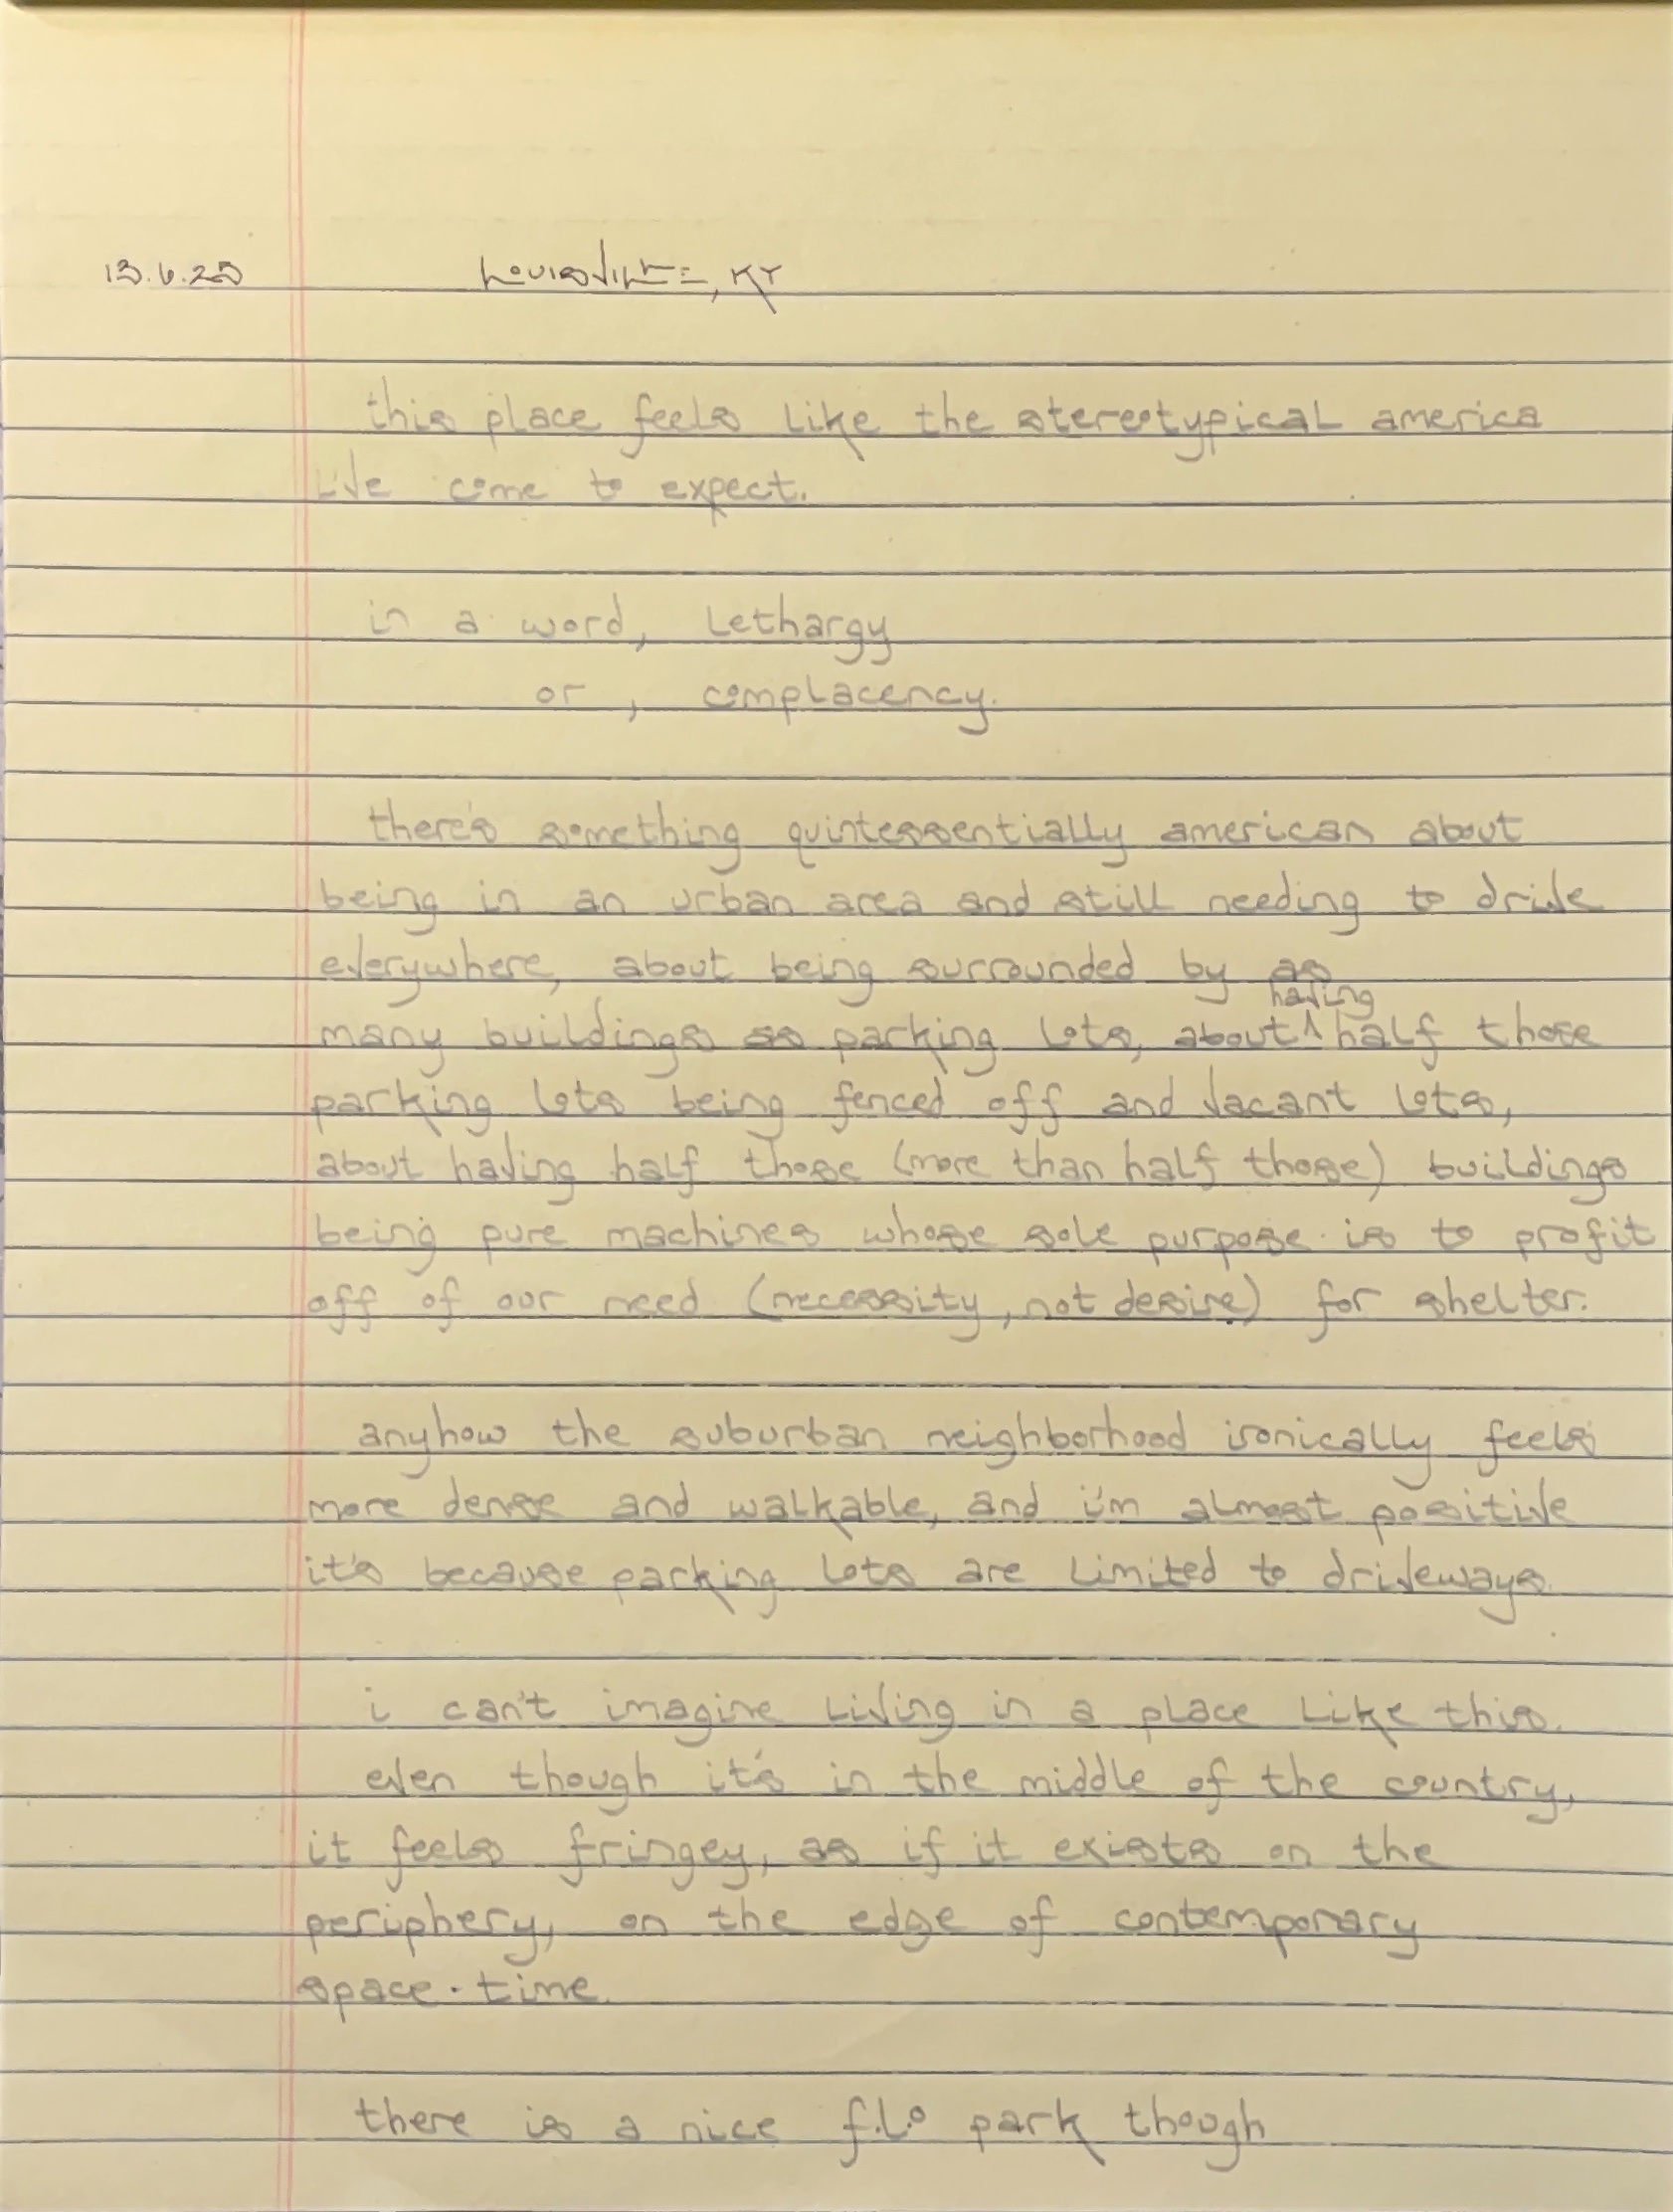 13.6.25 LOUISVILLE, KY
this place feels like the stereotypical america
i've come to expect.
in a word, lethargy
or, complacency.
there's something quintessentially american about
being in an urban area and still needing to drive
everywhere, about being surrounded by as
having
many buildings as parking lots, about ^ half those
parking lots being fenced off and vacant lots,
about having half those (more than half those) buildings
being pure machines whose sole purpose is to profit
off of our need (necessity, not desire) for shelter.
anyhow the suburban neighborhood ironically feels
more dense and walkable, and i'm almost positive
it's because parking lots are limited to driveways.
i can't imagine living in a place like this.
even though it's in the middle of the country,
it feels fringey, as if it exists on the
periphery, on the edge of contemporary
space-time.
there is a nice f.l.o park though